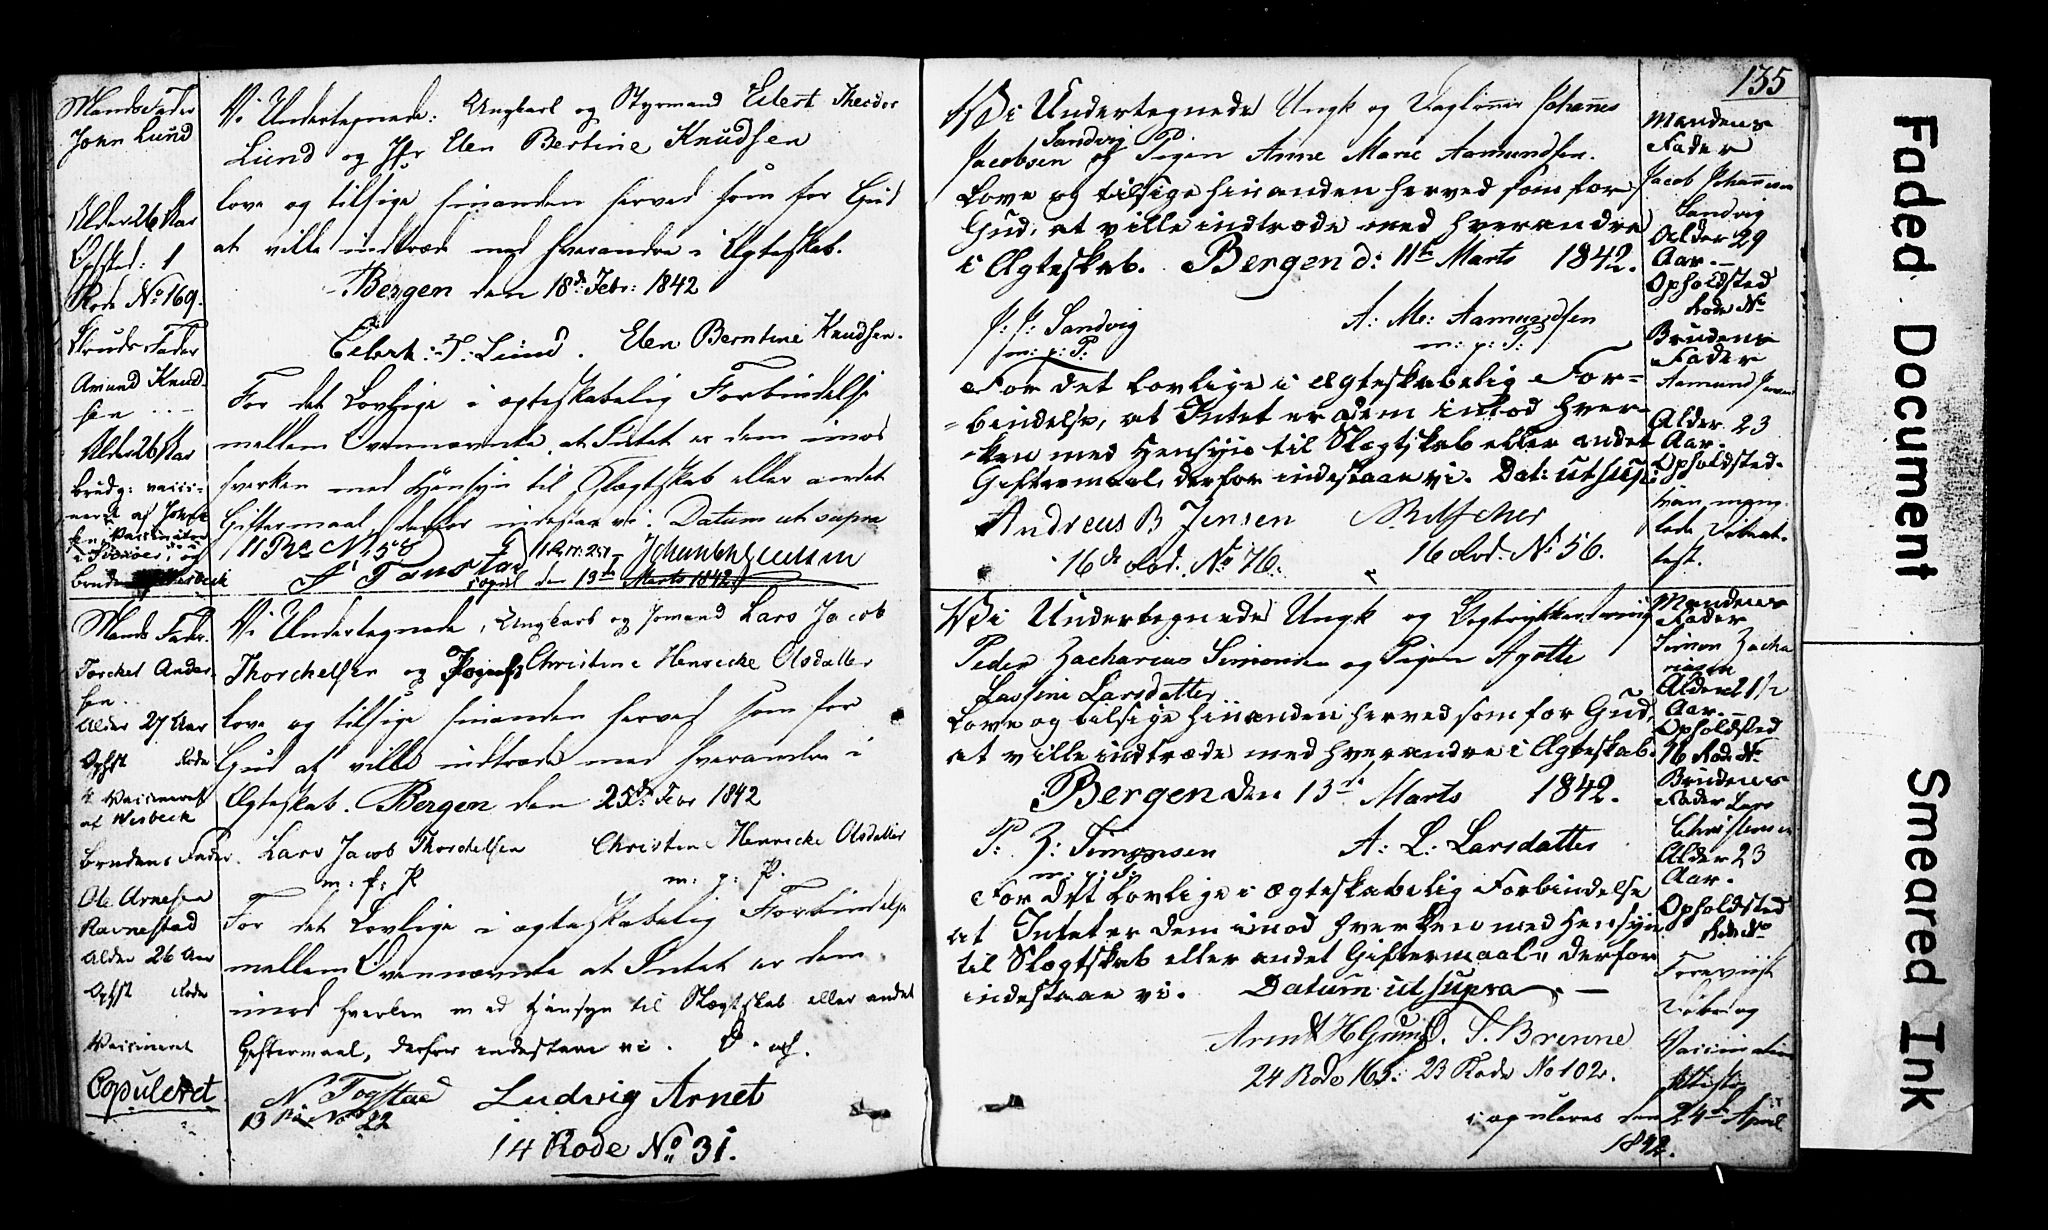 Mands Fader
John Lund
Alder 26 Aar
Opsted: 1
Rode No 169.
Bruds Fader
Amund Knud-
sen
Alder 26 Aar
Brudg: vacci-
neret af
Vi Undertegnede: Ungkarl og Styrmand Eilert Theodor
Lund og Jfr Elen Bertine Knudsen
love og tilsige hinanden herved som for Gud
at ville indtræde med hverandre i Ægteskab.
Bergen den 18de Febr: 1842
Eilert: T: Lund. Elen Berntine Knudsen.
For det Lovlige i ægteskabelig Forbindelse
mellem Ovennævnte, at Intet er dem imod
hverken med Hensyn til Slægtskab eller andet
Giftermaal, derfor indestaa vi. Datum ut supra
den 13de Marts 1842
Mands Fader.
Torckel Ander-
sen
Alder 27 Aar
Ophst Rode
Vaccineret
af Wisbeck
Brudens Fader.
Ole Arnesen
Ravnestad
Alder 26 Aar
Ophst Rode
Vaccineret
Copuleret
Vi Undertegnede, Ungkarl og Lars Jacob
Thorchelsen og Christine Henricke Olsdatter
love og tilsige hinanden herved som for
Gud at ville indtræde med hverandre i
Ægteskab. Bergen den 25de Febr 1842
Lars Jacob Thorchelsen Christine Henricke Olsdatter
m: f: P m: p: P.
For det Lovlige i ægteskabelig Forbindelse
mellem Ovennævnte at Intet er dem
imod hverken med Hensyn til Slægtskab eller andet
Geftermaal, derfor indestaae vi.
N Fogstad Ludvig Arnet
13 No 22
14 Rode No 31.
135
Wi Undertegnede Ungk og Johannes
Sandvig
Jacobsen og Pigen Anne Marie Aamundsen.
Love og tilsige hinanden herved som for
Gud, at ville indtræde med hverandre
i Ægteskab. Bergen d: 11te Marts 1842.
J: J: Sandvig A: M: Aamundsen
m: p: P: m: p: P:
For det Lovlige i Ægteskabelig For-
bindelse, at Intet er dem imod hver-
ken med Hensyn til Slægtskab eller andet
Giftermaal, derfor indestaae vi. Dat: ut sup:
Andreas B Jensen
16de Rod. No 76. 16 Rod. No 56.
Mandens
Fader
Jacob Johannesen
Sandvig
Alder 29
Aar.
Opholdsted
Rode No
Brudens
Fader
Aamund
Alder 23
Aar.
Opholdsted.
Wi Undertegnede Ungk og
Peder Zacharias Simonsen og Pigen Agotte
Lassine Larsdatter
Love og tilsige hinanden herved som for Gud,
at ville indtræde med hverandre i Ægteskab.
Bergen den 13de Marts 1842.
P: Z: Simonsen A: L: Larsdatter
m: p: P:
For det Lovlige i Ægteskabelig Forbindelse
at Intet er dem imod hverken med Hensyn
til Slægtskab eller andet Giftermaal, derfor
indestaae vi. Datum ut supra
S. Brenne
24 Rode 165: 23 Rode No 102.
Copuleres den 24de April
1842.
Mandens
Fader
Simon Zacha
riasen
Alder 21 1/2
Aar.
Opholdsted
16 Rode No
Brudens
Fader Lars
Christensen
Alder 23
Aar.
Opholdsted
Rode No
Foreviist
Daab og
Vaccination
Attester
Faded Document
Smeared Ink